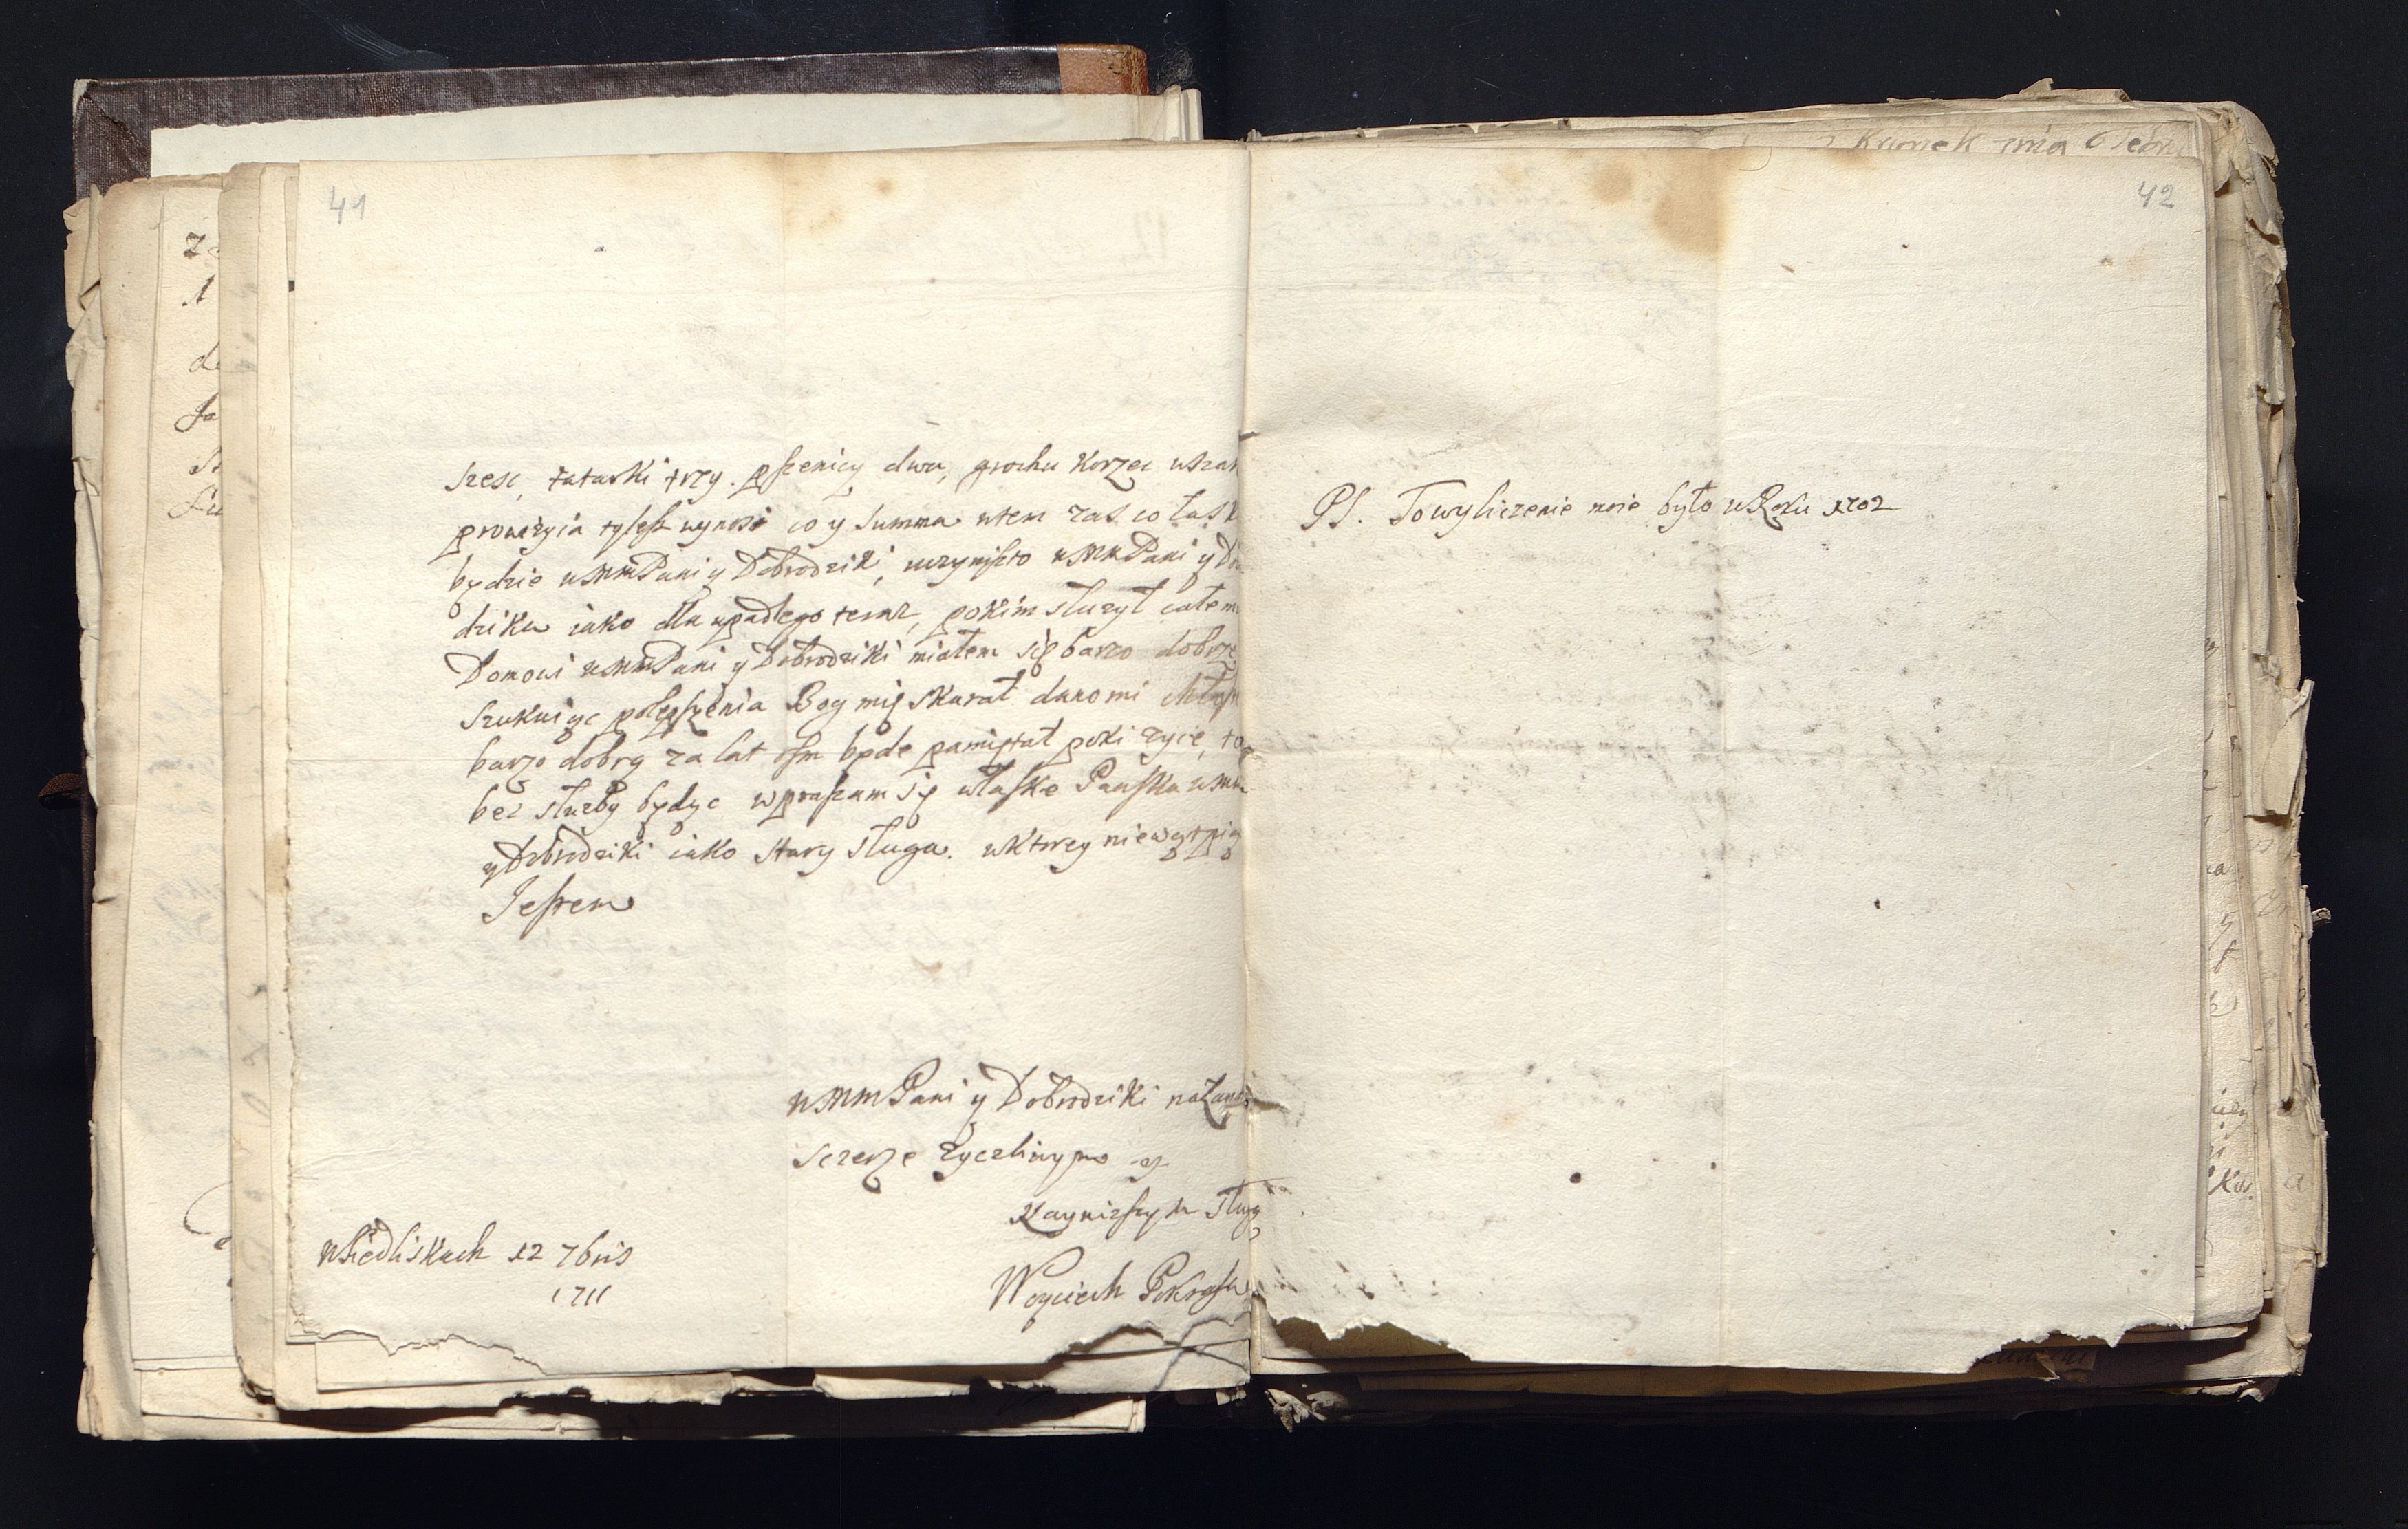 41
szesc, tatarki trzy. pszenicy dwa, grochu korzec
prowizyia tylesz wynosi co y summa wtem zas co łask
będzie wMMPani y Dobrodziki, uczynisz to wMMPani y Do
dzika iako dla upadłego teraz, pokim słuzył całem
Domowi wMMPani y Dobrodziki miałem się barzo dobrze
szukaiąc polepszenia Bog mię skarał dano mi
barzo dobrą za lat osm będe pamiętał poki życie, to
bez słuzby będąc wpraszam się właske Pańską wMM
y Dobrodziki iako stary sługa. wktorey niewątpią
Jestem
wMMPani y Dobrodziki
sczerze zyczliwym y
Nayniższym sługą
Woyciech
wSiedliskach 12 7bris
1711
42
PS. To wyliczenie moie było wRoku 1702